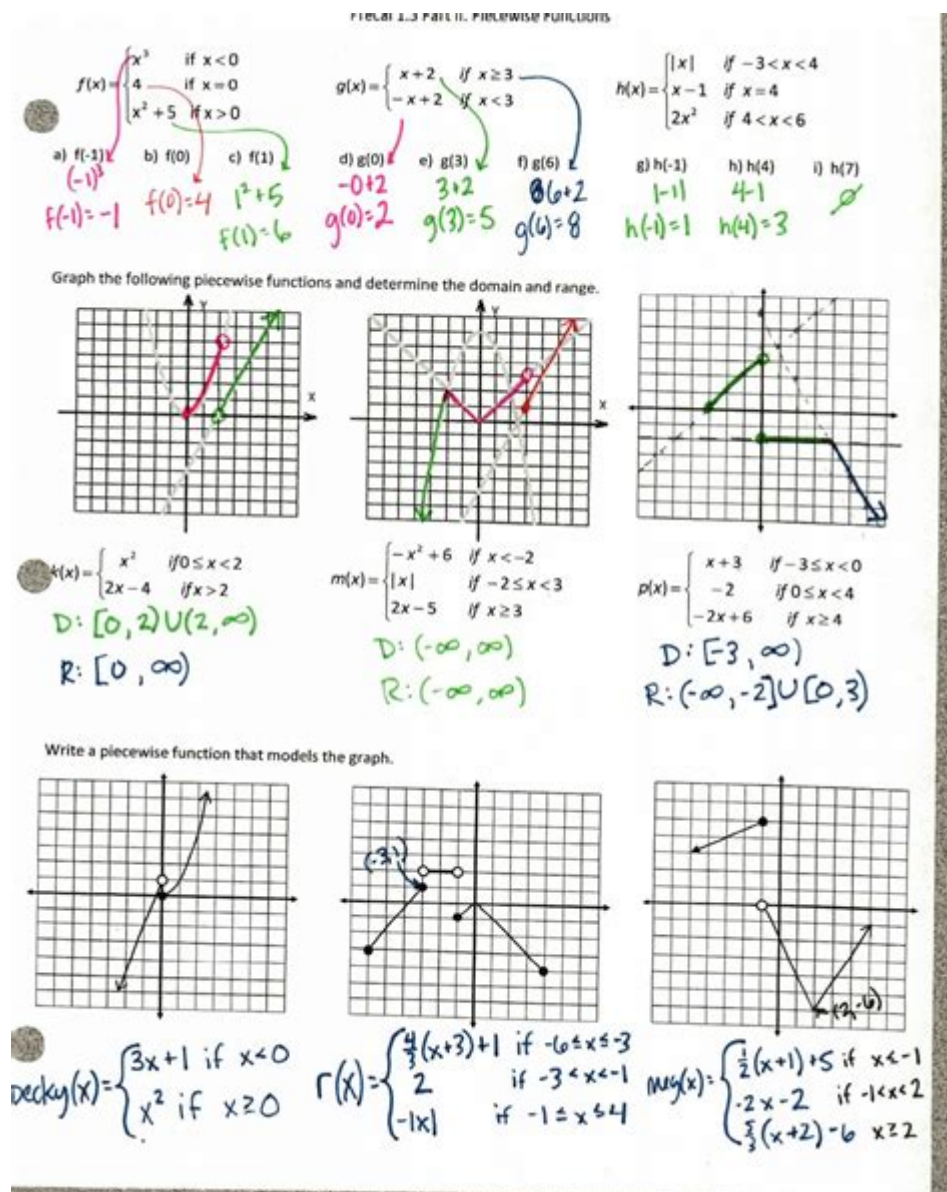 PreCal 1.3 Part II: Piecewise Functions
f(x) = { x³ if x < 0
4 if x = 0
x² + 5 if x > 0
g(x) = { x + 2 if x ≥ 3
−x + 2 if x < 3
h(x) = { |x| if −3 < x < 4
x − 1 if x = 4
2x² if 4 < x < 6
a) f(-1) b) f(0) c) f(1) d) g(0) e) g(3) f) g(6) g) h(-1) h) h(4) i) h(7)
(-1)³ f(0)=4 1²+5 -0+2 3+2 6+2 |-1| 4-1 ∅
f(-1)=-1 f(1)=6 g(0)=2 g(3)=5 g(6)=8 h(-1)=1 h(4)=3
Graph the following piecewise functions and determine the domain and range.
Y Y
X X
k(x) = { x² if 0 ≤ x < 2
2x − 4 if x > 2
D: [0, 2) U (2, ∞)
R: [0, ∞)
m(x) = { −x² + 6 if x < −2
|x| if −2 ≤ x < 3
2x − 5 if x ≥ 3
D: (-∞, ∞)
R: (-∞, ∞)
p(x) = { x + 3 if −3 ≤ x < 0
−2 if 0 ≤ x < 4
−2x + 6 if x ≥ 4
D: [-3, ∞)
R: (-∞, -2] U [0, 3)
Write a piecewise function that models the graph.
(-3,1)
(2,-6)
becky(x) = { 3x+1 if x<0
x² if x≥0
r(x) = { 4/3(x+3)+1 if -6≤x≤-3
2 if -3<x<-1
-|x| if -1≤x≤4
meg(x) = { 1/2(x+1)+5 if x≤-1
-2x-2 if -1<x<2
5/3(x+2)-6 x≥2